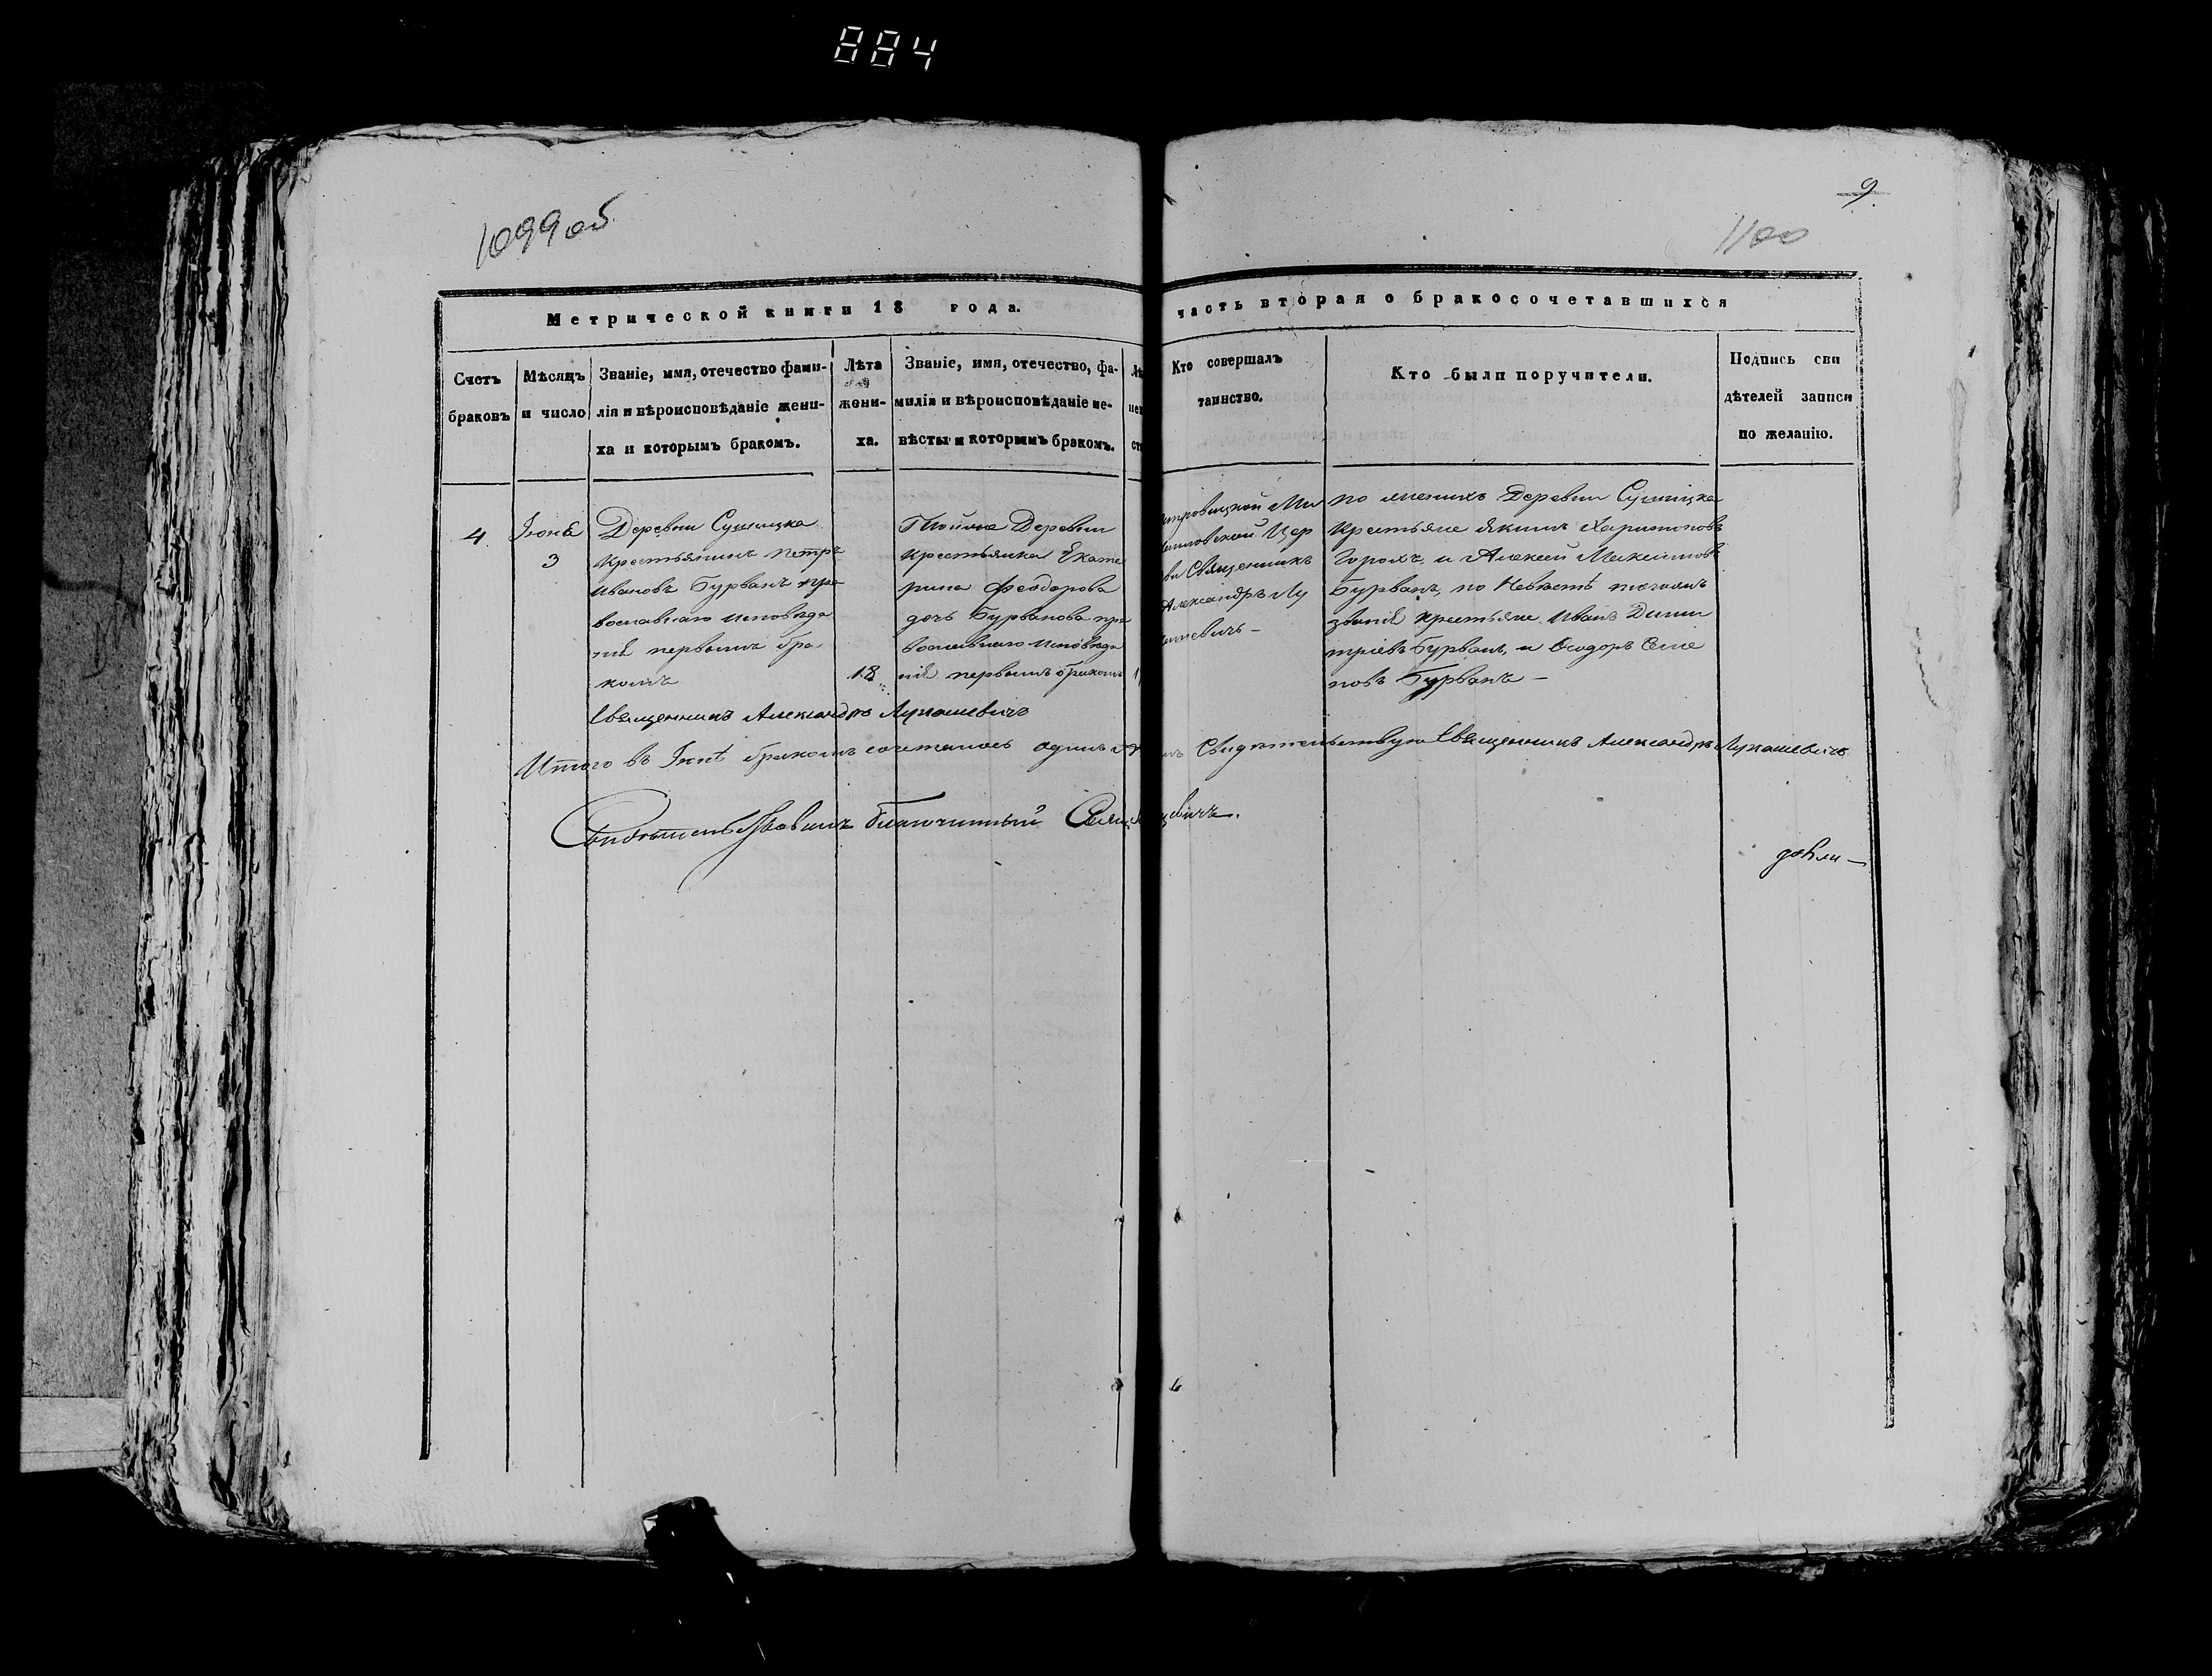 884
1099об
9
1100
Метрической книги 18 года.
часть вторая о бракосочетавшихся
Счетъ
браковъ
Мѣсяцъ
и число
Званіе, имя, отечество фами-
лія и вѣроисповѣданіе жени-
ха и которымъ бракомъ.
Лѣта
жени-
ха.
Званіе, имя, отечество, фа-
милія и вѣроисповѣданіе не-
вѣсты и которымъ бракомъ.
Кто совершалъ
таинство.
Кто были поручители.
Подпись сви
дѣтелей записи
по желанію.
4
Іюня
3
Деревни Сушицка
крестьянинъ Петръ
Ивановъ Бурванъ пра
вославнаго исповѣда
нія первымъ бра
комъ
18
Тойже Деревни
крестьянка Екате
рина Феодорова
дочь Бурванова пра
вославнаго исповѣда
нія первымъ бракомъ
Ми
Цер
ви Священникъ
Александръ Лу
кашевичъ –
по женихѣ Деревни Сушицка
крестьяне Якимъ Харитоновъ
Горохъ, и Алексей Максимовъ
Бурванъ, по Невѣстѣ тогожъ
званія крестьяне Иванъ Дими
тріевъ Бурванъ, и Феодоръ Семе
новъ Бурванъ –
Священникъ Александръ Лукашевичъ
Итого въ Іюнѣ бракомъ сочеталось одинъ Свидетельствую Священникъ Александръ Лукашевичъ
благочинный